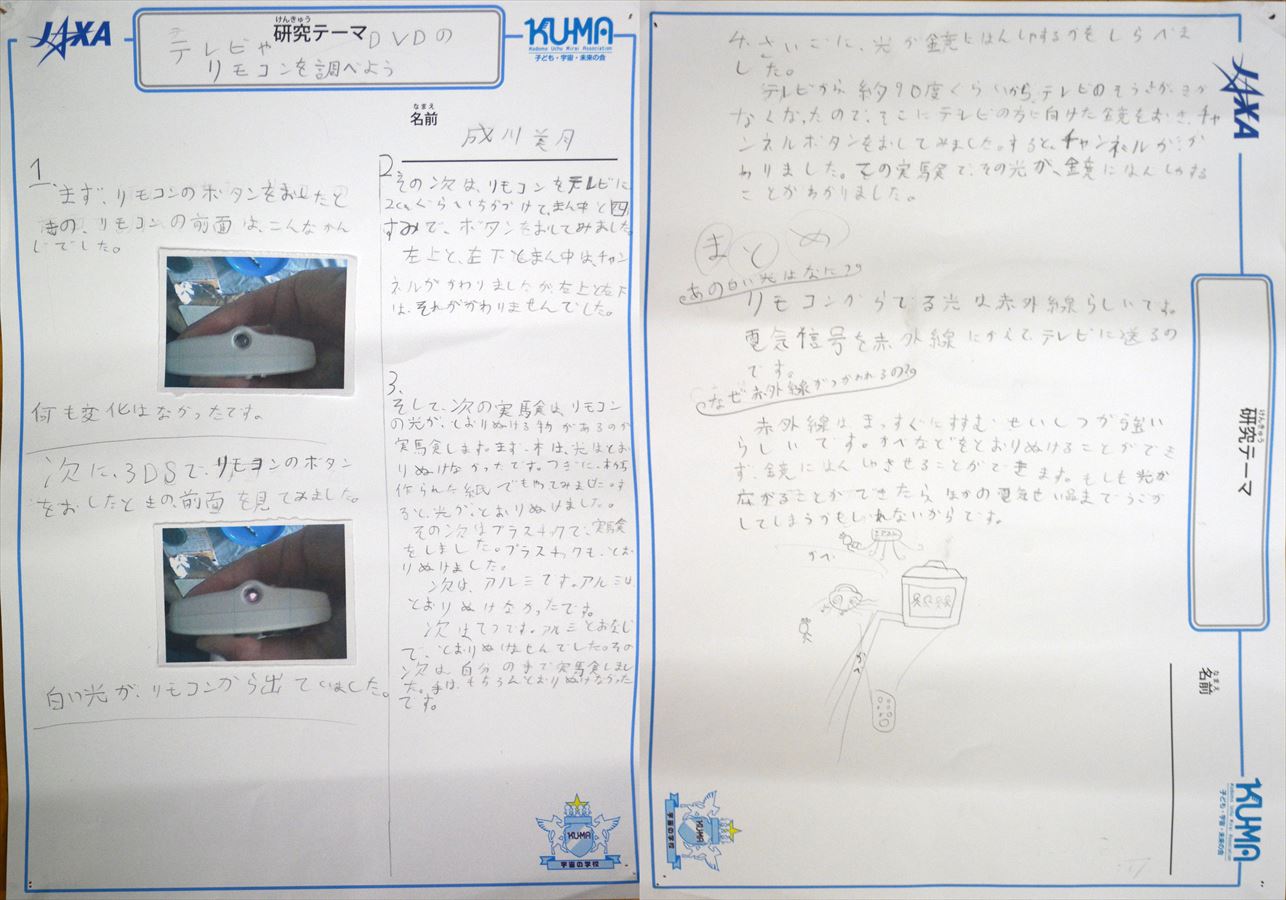 JAXA
けんきゅう
研究テーマ
テレビやDVDの
リモコンを調べよう
KUMA
Kodomo Uchu Mirai Association
子ども・宇宙・未来の会
なまえ
名前
成川美月
1
まず、リモコンのボタンをおしたと
きの、リモコンの前面は、こんなかん
じでした。
何も変化はなかったです。
次に、3DSで、リモコンのボタン
をおしたときの、前面を見てみました。
白い光が、リモコンから出ていました。
2
その次は、リモコンをテレビに
2cmぐらいちかづけて、まん中と四
すみで、ボタンをおしてみました。
左上と、左下とまん中は、チャン
ネルがかわりましたが左上と左下
は、それがかわりませんでした。
3.
そして、次の実験は、リモコン
の光が、とおりぬける物があるのか
実験します。まず、木は、光はとお
りぬけなかったです。つぎに、木から
作られた紙でもやってみました。す
ると、光が、とおりぬけました。
その次はプラスチックで、実験
をしました。プラスチックも、とお
りぬけました。
次は、アルミです。アルミは、
とおりぬけなかったです。
次はてつです。アルミとおなじ
で、とおりぬけませんでした。その
次は、自分の手で実験しまし
た。手は、もちろんとおりぬけなかった
です。
KUMA
宇宙の学校
4.さいごに、光が鏡にはんしゃするかをしらべま
した。
テレビから約90度くらいから、テレビのそうさが、きか
なくなったので、そこにテレビの方に向けた鏡をおき、チャ
ンネルボタンをおしてみました。すると、チャンネルが、か
わりました。この実験で、その光が、鏡にはんしゃする
ことがわかりました。
まとめ
あの白い光はなに?
リモコンからでる光は赤外線らしいです。
電気信号を赤外線にかえて、テレビに送るの
です。
なぜ赤外線がつかわれるの?
赤外線は、まっすぐにすすむせいしつが強い
らしいです。かべなどをとおりぬけることができ
ず、鏡にはんしゃさせることができます。もしも光が
広がることができたら、ほかの電気せい品まで、うごか
してしまうかもしれないからです。
エアコン
かべ
かべ
JAXA
けんきゅう
研究テーマ
なまえ
名前
KUMA
Kodomo Uchu Mirai Association
子ども・宇宙・未来の会
KUMA
宇宙の学校